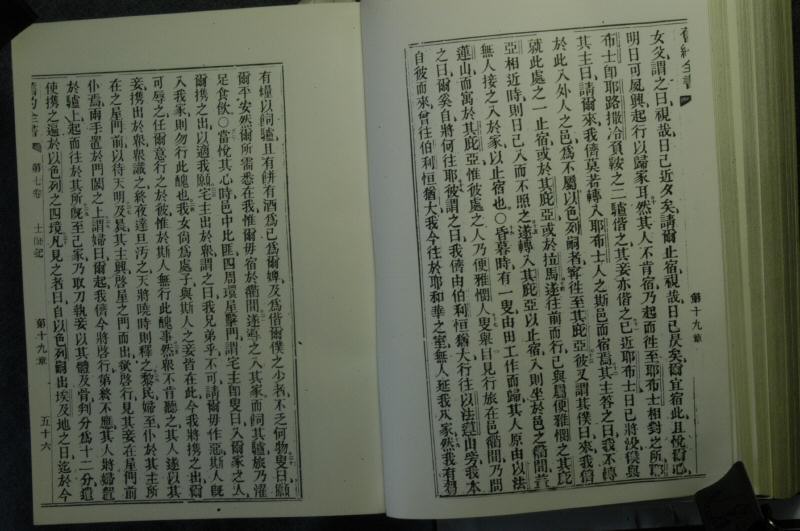 舊約全書
第十九章
女父謂之曰視哉日已近夕矣請爾止宿視哉日已昃矣爾宜宿此且悅爾心
明日可夙興起行以歸家耳然其人不肯宿乃起而往至耶布士相對之所
布士即耶路撒冷負鞍之二驢偕之其妾亦偕之已近耶布士日已將沒僕與
其主曰請爾來我儕莫若轉入耶布士人之斯邑而宿焉其主答之曰我不轉
於此入外人之邑為不屬以色列嗣者寧往至其庇亞彼又謂其僕曰來我儕
就此處之一止宿或於其庇亞或於拉馬遂往前而行已與屬便雅憫之其庇
亞相近時則日已入而不照之遂轉入其庇亞以止宿入則坐於邑之衢間蓋
無人接之入於家以止宿也〇昏暮時有一叟由田工作而歸其人原由以法
蓮山而寓於其庇亞惟彼處之人乃便雅憫人叟舉目見行旅在邑衢間乃問
之曰爾奚自將何往耶彼謂之曰我儕由伯利恒猶大行往以法蓮山旁我本
自彼而來曾往伯利恒猶大我今往於耶和華之室無人延我入家然我有芻
有糧以飼驢且有餅有酒為己為爾婢及為偕爾僕之少者不乏何物叟曰願
爾平安然爾所需悉在我惟爾毋宿於衢間遂導之入其家而飼其驢旅乃濯
足食飲〇當悅其心時邑中比匪四周環室擊門謂宅主即叟曰入爾家之人
爾攜之出以適我願宅主出於眾謂之曰我兄弟乎不可請爾毋作惡斯人既
入我家則勿行此醜也我女尚為處子與斯人之妾皆在此今我將攜之出爾
可辱之任爾意行之於彼惟於斯人無行此醜事然眾不肯聽之其人遂以其
妾攜出於眾眾識之終夜達旦汚之天將曉時則釋之黎民婦至仆於其主所
在之屋門前以待天明及晨其主興啟屋之門而出欲啟行見其妾在屋門前
仆焉兩手置於門閾之上謂婦曰爾起我儕今將啟行第終不應其人將婦置
於驢上起而往於其所既至己家乃取刀執妾以其體及骨判分為十二分遣
使攜之遍於以色列之四境凡見之者曰自以色列嗣出埃及地之日迄於今
舊約全書
第七卷
士師記
第十九章
五十六